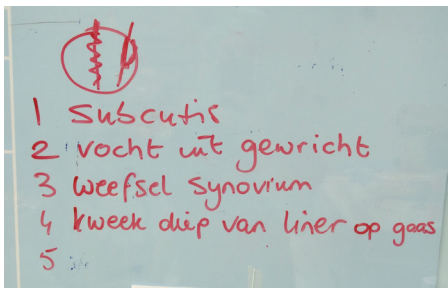 1 subcutis
2 vocht uit gewricht
3 weefsel synovium
4 kweek diep van liner op gaas
5